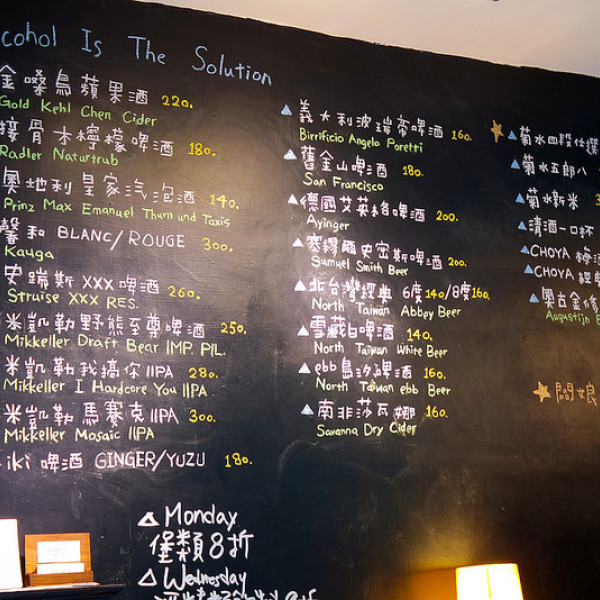 cohol Is The Solution
金嗓鳥蘋果酒 220.
Gold Kehl Chen Cider
接骨木檸檬啤酒 180.
Radler Naturtrub
奧地利皇家汽泡酒 140.
Prinz Max Emanuel Thurn und Taxis
馨和 BLANC/ROUGE 300.
Kauga
史踹斯 XXX 啤酒 260.
Struise XXX RES.
米凱勒野熊至尊啤酒 250.
Mikkeller Draft Bear IMP. PIL.
米凱勒我搞你 IIPA 280.
Mikkeller I Hardcore You IIPA
米凱勒 馬賽克 IIPA 300.
Mikkeller Mosaic IIPA
iki 啤酒 GINGER/YUZU 180.
義大利波瑞帝啤酒 160.
Birrificio Angelo Poretti
舊金山啤酒 180.
San Francisco
德國艾英格啤酒 200.
Ayinger
塞繆爾史密斯啤酒 200.
Sumuel Smith Beer
北台灣經典 6度140/8度160.
North Taiwan Abbey Beer
雪藏白啤酒 140.
North Taiwan White Beer
ebb島汐啤酒 160.
North Taiwan ebb Beer
南非莎瓦娜 160.
Savanna Dry Cider
菊水四段仕選
菊水五郎八
菊水新米
清酒一口杯
CHOYA 梅酒
CHOYA 經典
奧古金修
Augustijn B
問娘
Monday
堡類8折
Wednesday